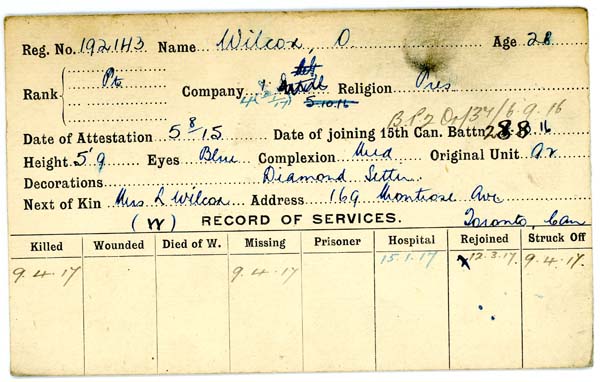 Reg. No. 192143 Name Wilcox, O. Age 28
Rank Pt Company 1 Religion Pres
4 5.10.16
B P2 Or/37/6.9.16
Date of Attestation 5 8/15 Date of joining 15th Can. Battn. 28.8.16
Height 5'9 Eyes Blue Complexion Med Original Unit 92
Decorations Diamond Setter
Next of Kin Mrs L Wilcox Address 169 Montrose Ave
(W) RECORD OF SERVICES. Toronto, Can
Killed Wounded Died of W. Missing Prisoner Hospital Rejoined Struck Off
9.4.17 9.4.17 15.1.17 x 12.3.17. 9.4.17